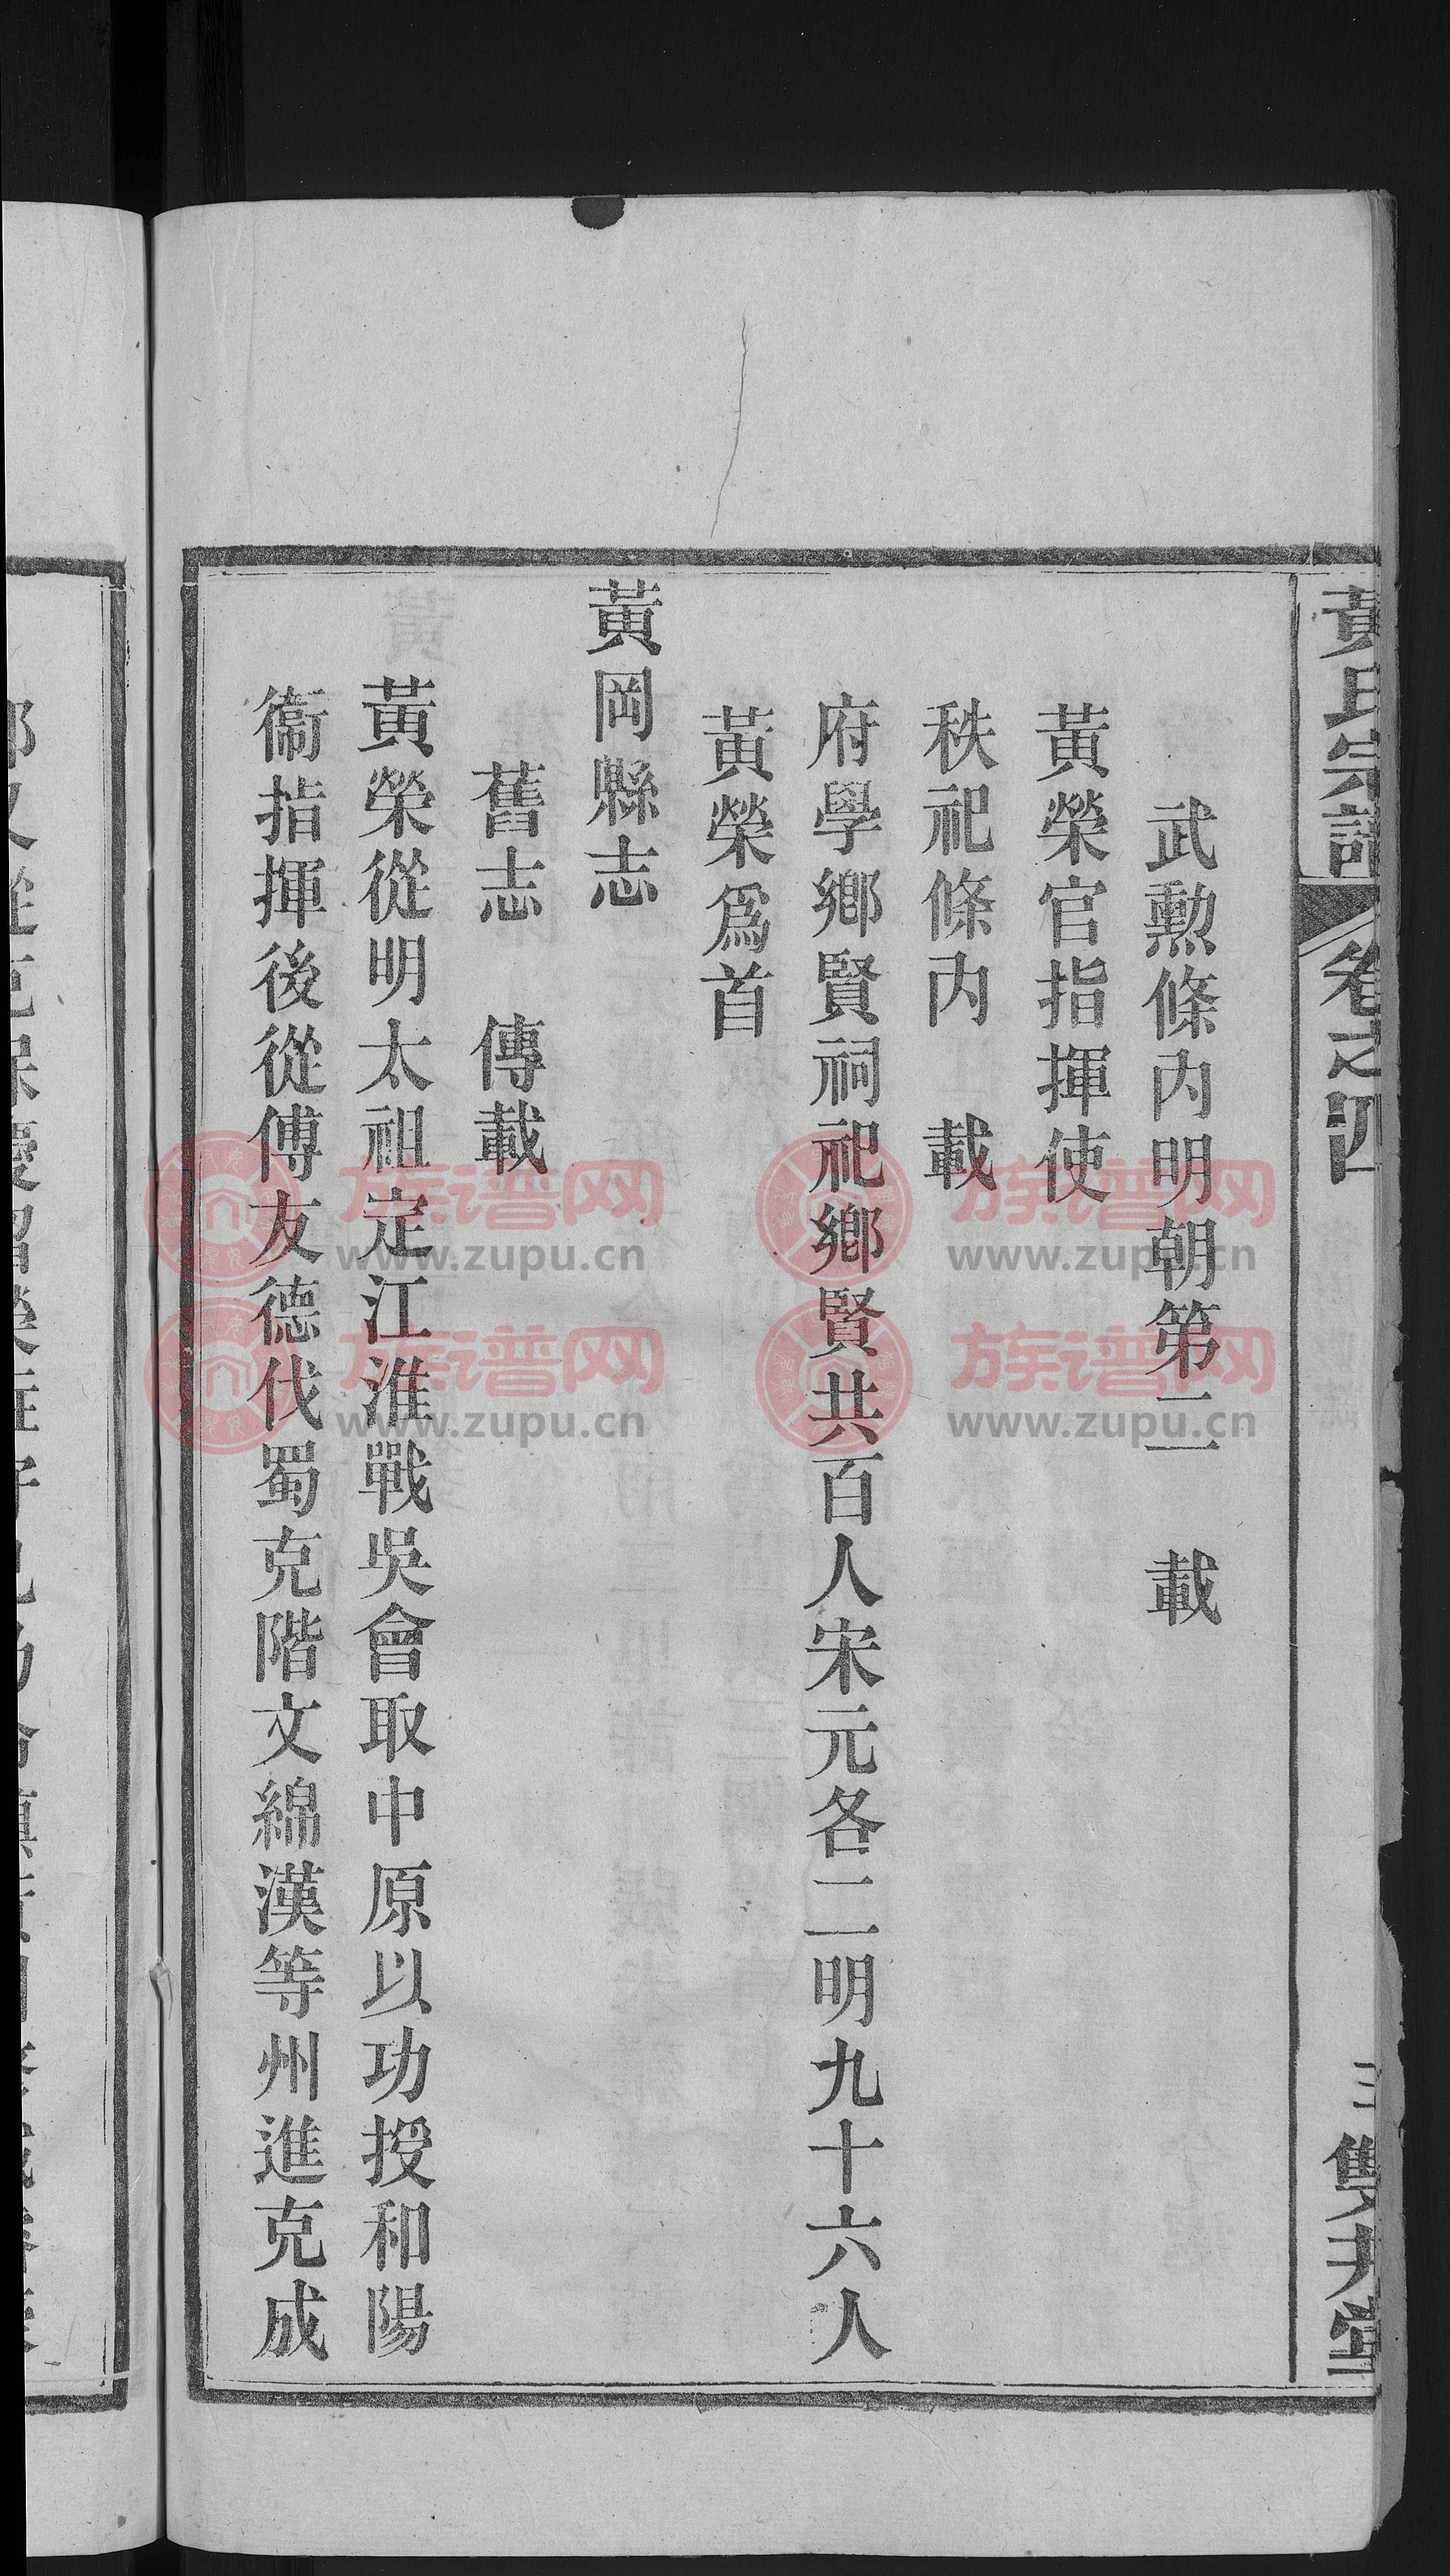 黃氏宗譜 卷之四 三 雙井堂
武勲條内明朝第二 載
黃榮官指揮使
秩祀條内 載
府學鄉賢祠祀鄉賢共百人宋元各二明九十六人
黃榮爲首
黃岡縣志
舊志 傳載
黃榮從明太祖定江淮戰吳會取中原以功授和陽
衞指揮後從傅友德伐蜀克階文綿漢等州進克成
族谱网
www.zupu.cn
族谱网
www.zupu.cn
族谱网
www.zupu.cn
族谱网
www.zupu.cn